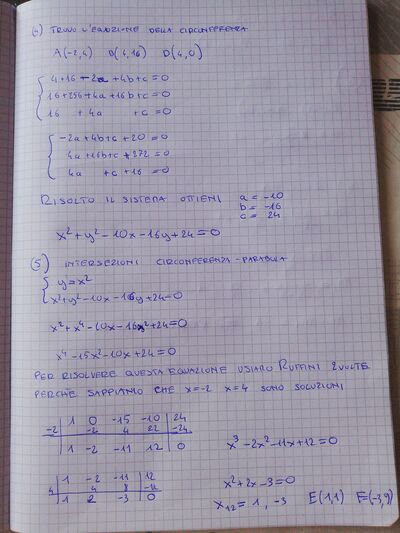 (4) TROVO L'EQUAZIONE DELLA CIRCONFERENZA
A(-2,4) B(4,16) D(4,0)
4+16-2a+4b+c=0
16+256+4a+16b+c=0
16 +4a +c=0
-2a+4b+c+20=0
4a+16b+c+272=0
4a +c+16=0
RISOLTO IL SISTEMA OTTIENI a=-10
b=-16
c=24
x²+y²-10x-16y+24=0
(5) INTERSEZIONI CIRCONFERENZA-PARABOLA
y=x²
x²+y²-10x-16y+24=0
x²+x⁴-10x-16x²+24=0
x⁴-15x²-10x+24=0
PER RISOLVERE QUESTA EQUAZIONE USIAMO RUFFINI 2 VOLTE
PERCHE SAPPIAMO CHE x=-2 x=4 SONO SOLUZIONI
1 0 -15 -10 24
-2 -2 4 22 -24
1 -2 -11 12 0
x³-2x²-11x+12=0
1 -2 -11 12
4 4 8 -12
1 2 -3 0
x²+2x-3=0
x12=1,-3 E(1,1) F=(-3,9)